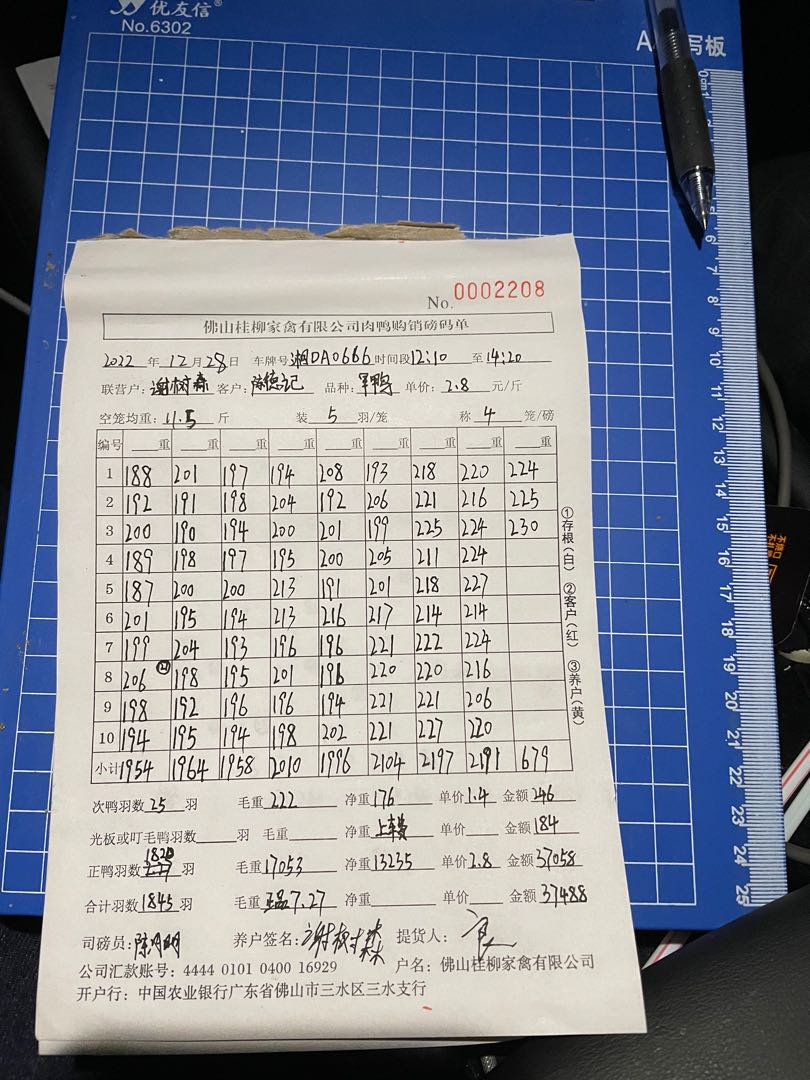 优友信®
No.6302
A4 写板
No. 0002208
佛山桂柳家禽有限公司肉鸭购销磅码单
2022 年 12 月 28 日 车牌号 湘DA0666 时间段 12:10 至 14:20
联营户: 谢树森 客户: 陈德记 品种: 单价: 2.8 元/斤
空笼均重: 11.5 斤 装 5 羽/笼 称 4 笼/磅
编号 重 重 重 重 重 重 重 重 重
1 188 201 197 194 208 193 218 220 224
2 192 191 198 204 192 206 221 216 225
3 200 190 194 200 201 199 225 224 230
4 189 198 197 195 200 205 211 224
5 187 200 200 213 191 201 218 227
6 201 195 194 213 216 217 214 214
7 199 204 193 196 196 221 222 224
8 206 198 195 201 196 220 220 216
9 198 192 196 196 194 221 221 206
10 194 195 194 198 202 221 227 220
小计 1954 1964 1958 2010 1996 2104 2197 2191 679
次鸭羽数 25 羽 毛重 222 净重 176 单价 1.4 金额 246
光板或叮毛鸭羽数 羽 毛重 净重 上车费 单价 金额 184
正鸭羽数 1820 羽 毛重 17053 净重 13235 单价 2.8 金额 37058
合计羽数 1845 羽 毛重 7.27 净重 单价 金额 37488
司磅员: 养户签名: 谢树森 提货人:
公司汇款账号: 4444 0101 0400 16929 户名: 佛山桂柳家禽有限公司
开户行: 中国农业银行广东省佛山市三水区三水支行
①存根(白) ②客户(红) ③养户(黄)
0cm1 2 6 7 8 9 10 11 12 13 14 15 16 17 18 19 20 21 22 23 24 25